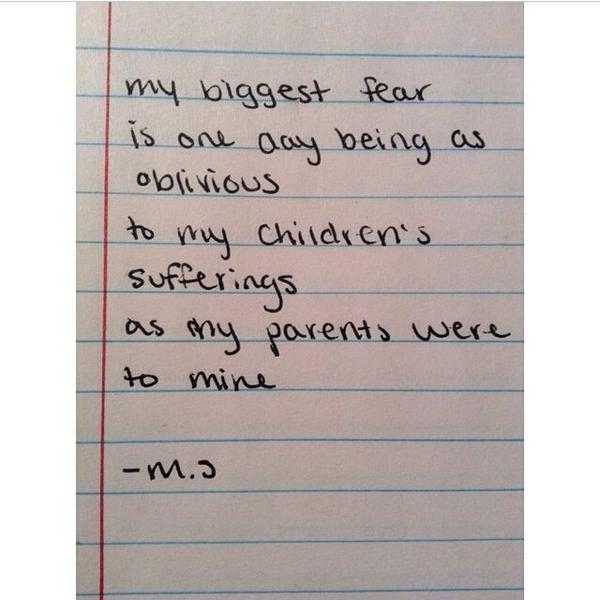 my biggest fear
is one day being as
oblivious
to my children's
sufferings
as my parents were
to mine
-M.J